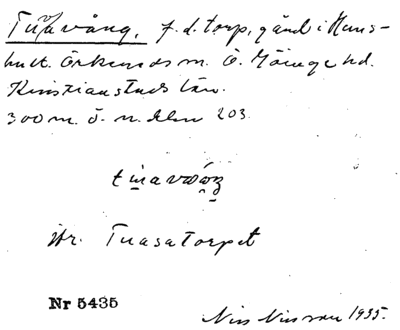 f. d. torp, gård i Huns-
hult. Örkeneds sn. Ö. Göinge hd.
Kristianstads län.
300 m. Ö. 203.
Jfr. Tuasatorpet
Nr 5435
Nils Nilsson 1935.